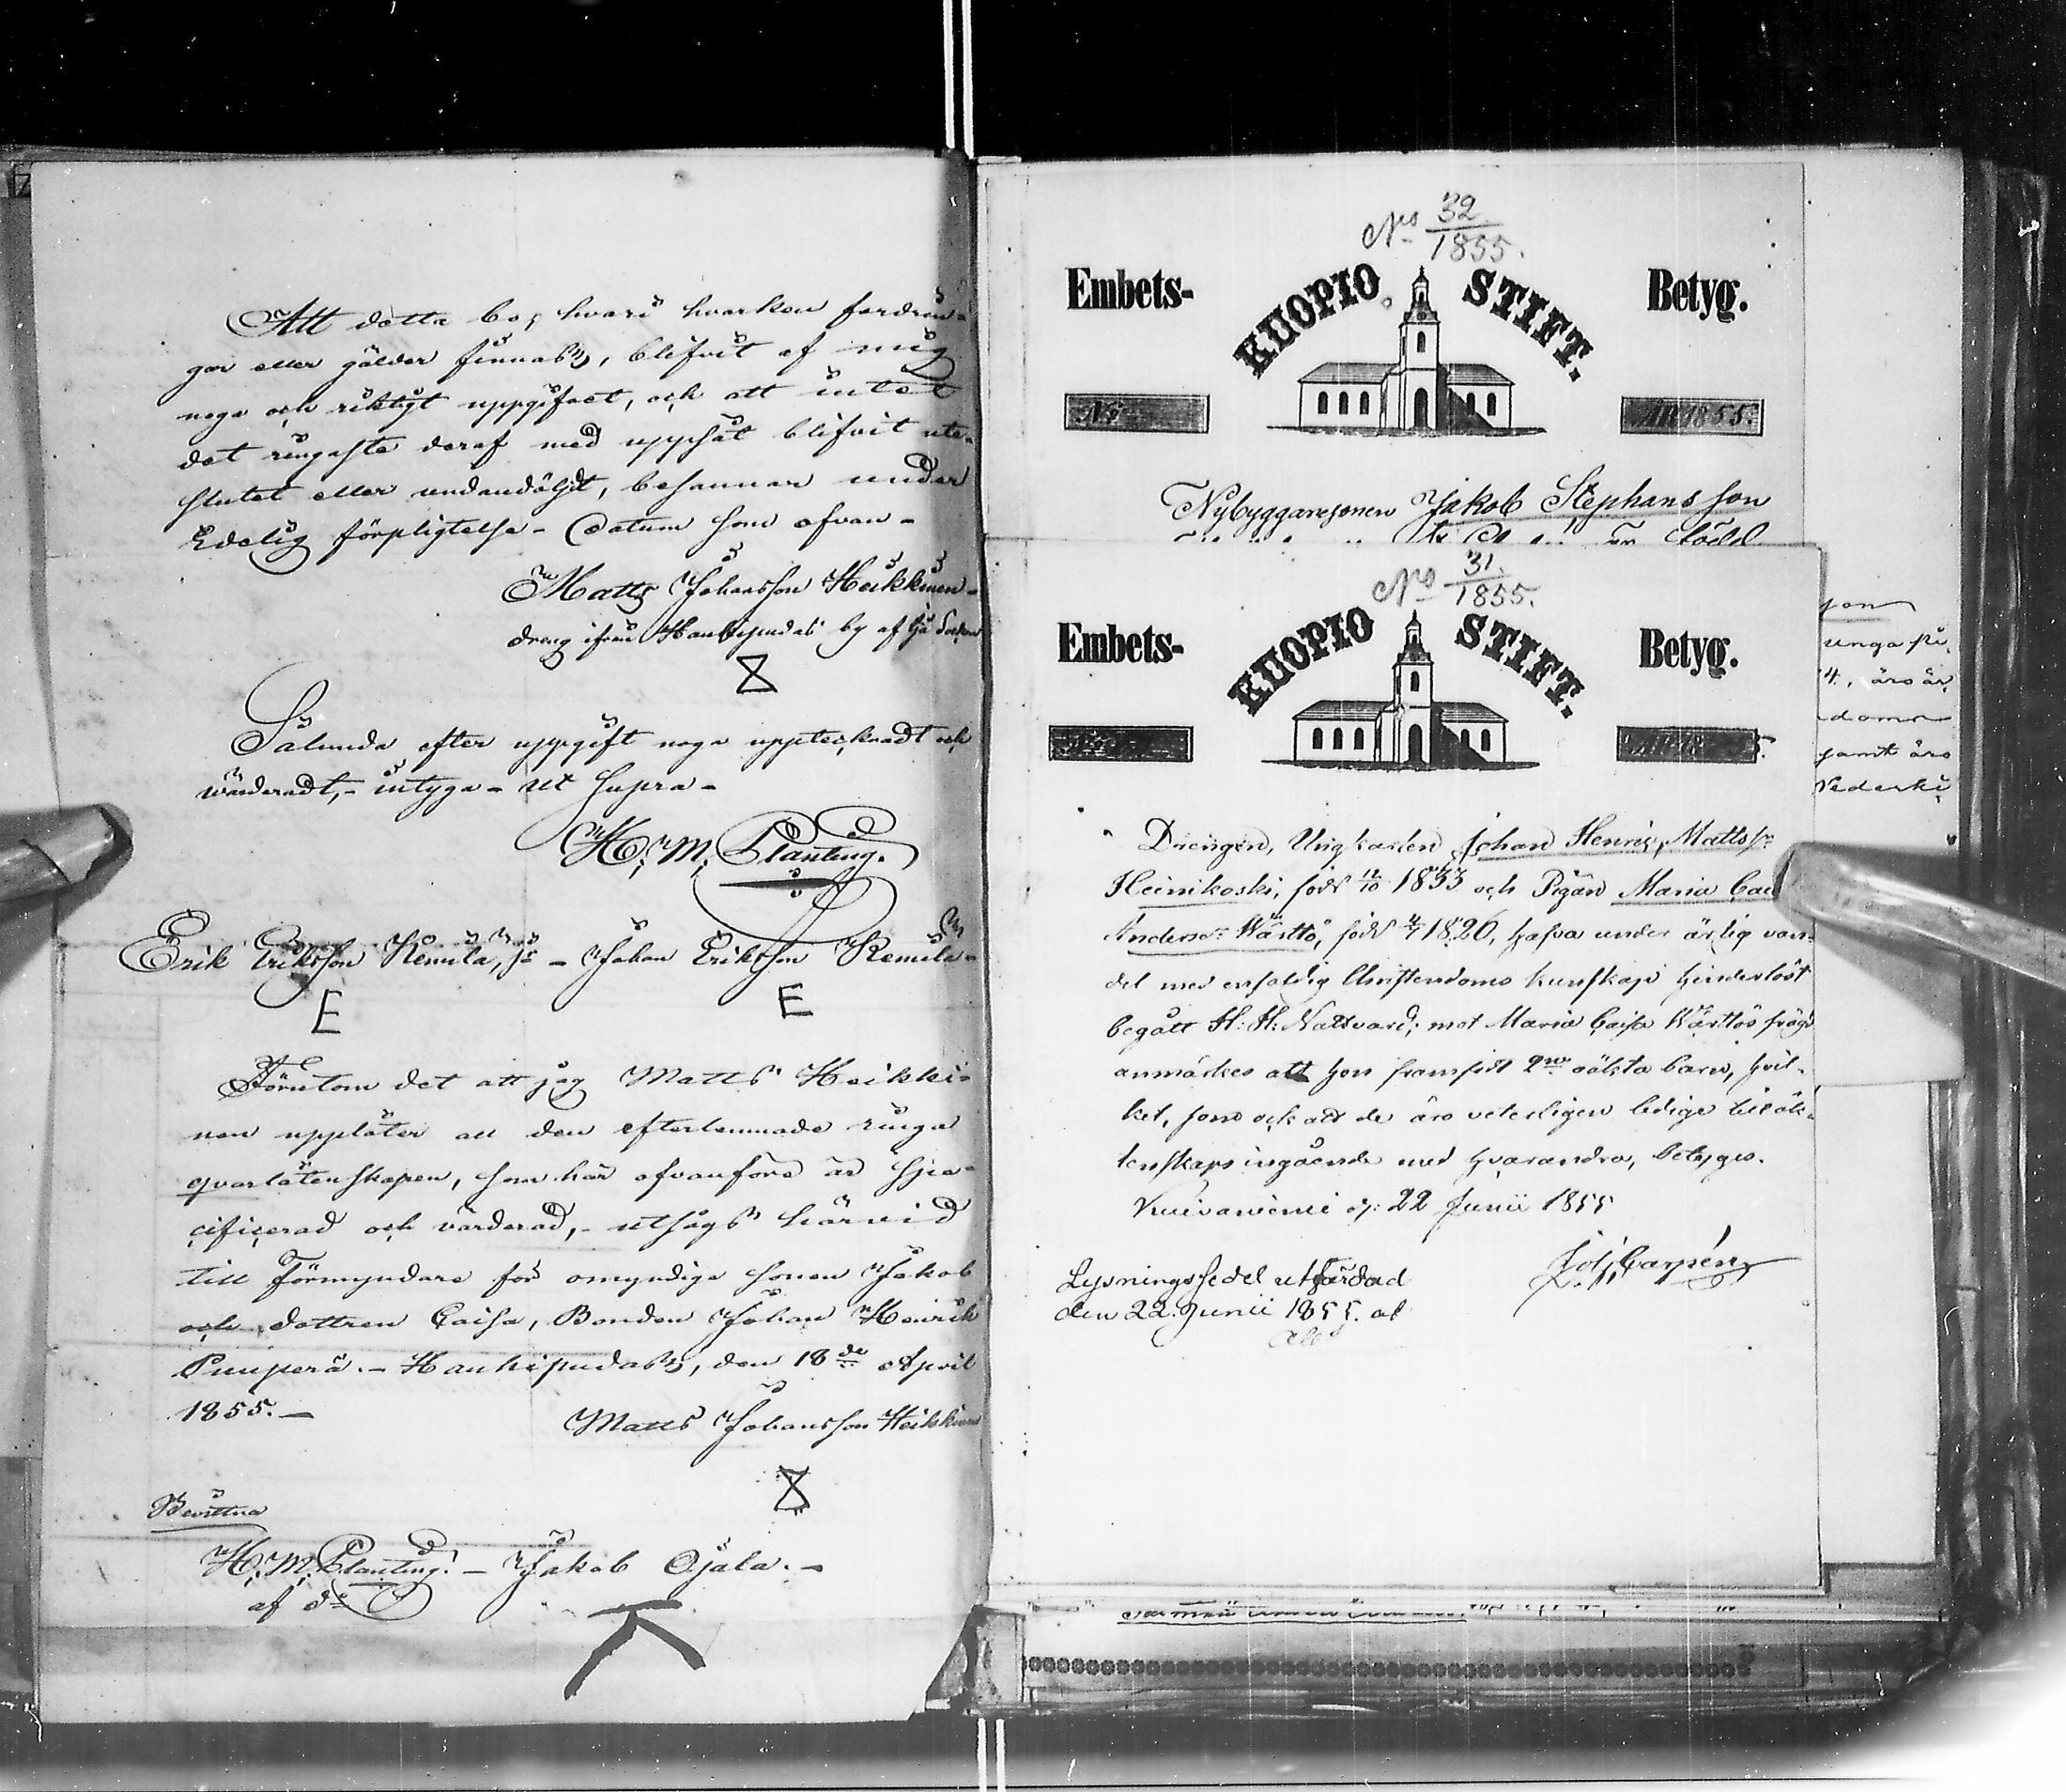 Att detta bo, hvari hvarken fordrin-
gar eller gälder finnass, blifvit af mig
noga och riktigt uppgifvet, och att intet
det ringaste deraf med uppsåt blifvit ute-
slutet eller undandöljdt, besannar under
Edelig förpligtelse - Datum som ofvan -
Matts Johansson Heikkinen -
dreng ifrån Haukipudas by af
Sålunda efter uppgift noga uppteknadt och
wärderadt, - intyga - ut supra -
H. M. Planting.
Erik Eriksson Remila, - Johan Eriksson Remila -
E E
Förutom det att jag Matts Heikki-
nen upplåter all den efterlemnade ringa
qvarlåtenskapen, som här ofvanföre är spe-
cificerad och värderad, - utsågs härvid
till Förmyndare för omyndige sonen Jakob
och dottren Caisa, Bonden Johan Henrik
Puuperä. - Haukipudass, den 18de April
1855. -
Matts Johansson Heikkinen
Bevittna
H. M. Planting. - Jakob Ojala. -
af do
No 32/1855.
Embets- KUOPIO STIFT. Betyg.
No ÅR 1855.
Nybyggaresonen Jakob Stephansson
född
No 31./1855.
Embets- KUOPIO STIFT. Betyg.
Drengen, Ungkarlen Johan Henric Mattss:n
Heinikoski, född 12/10 1833 och Pigan Maria Cai
Andersd:r Wärttö, född 4/7 1826, hafva under ärlig van-
del med enfaldig Christendoms kunskap hinderlöst
begått H: H: Nattvard; mot Maria Caisa Wärttös frägd
anmärkes att hon framfödt 2ne oäkta barn, hvil-
ket, som ock att de äro veterligen ledige till äk-
tenskaps ingående med hvarandra, betyges.
Kuivaniemi d: 22 Junii 1855
Joh. Carpén
Lysningssedel utfärdad
den 22. Junii 1855. af
son
unga på
4., äro är
doms
samt äro
Nederki